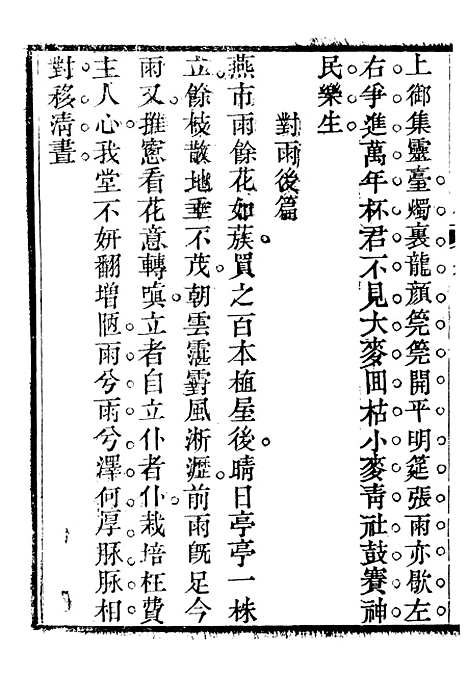 上御集靈臺燭裏龍顔筦筦開平明筵張雨亦歇左
右爭進萬年杯君不見大麥回枯小麥靑社鼓賽神
民樂生
對雨後篇
燕市雨餘花如蔟買之百本植屋後晴日亭亭一株
立餘枝散地垂不茂朝雲靄霨風淅瀝前雨旣足今
雨又推窻看花意轉嗔立者自立仆者仆栽培枉費
主人心我堂不妍翻增陋雨兮雨兮澤何厚脉脉相
對移淸晝